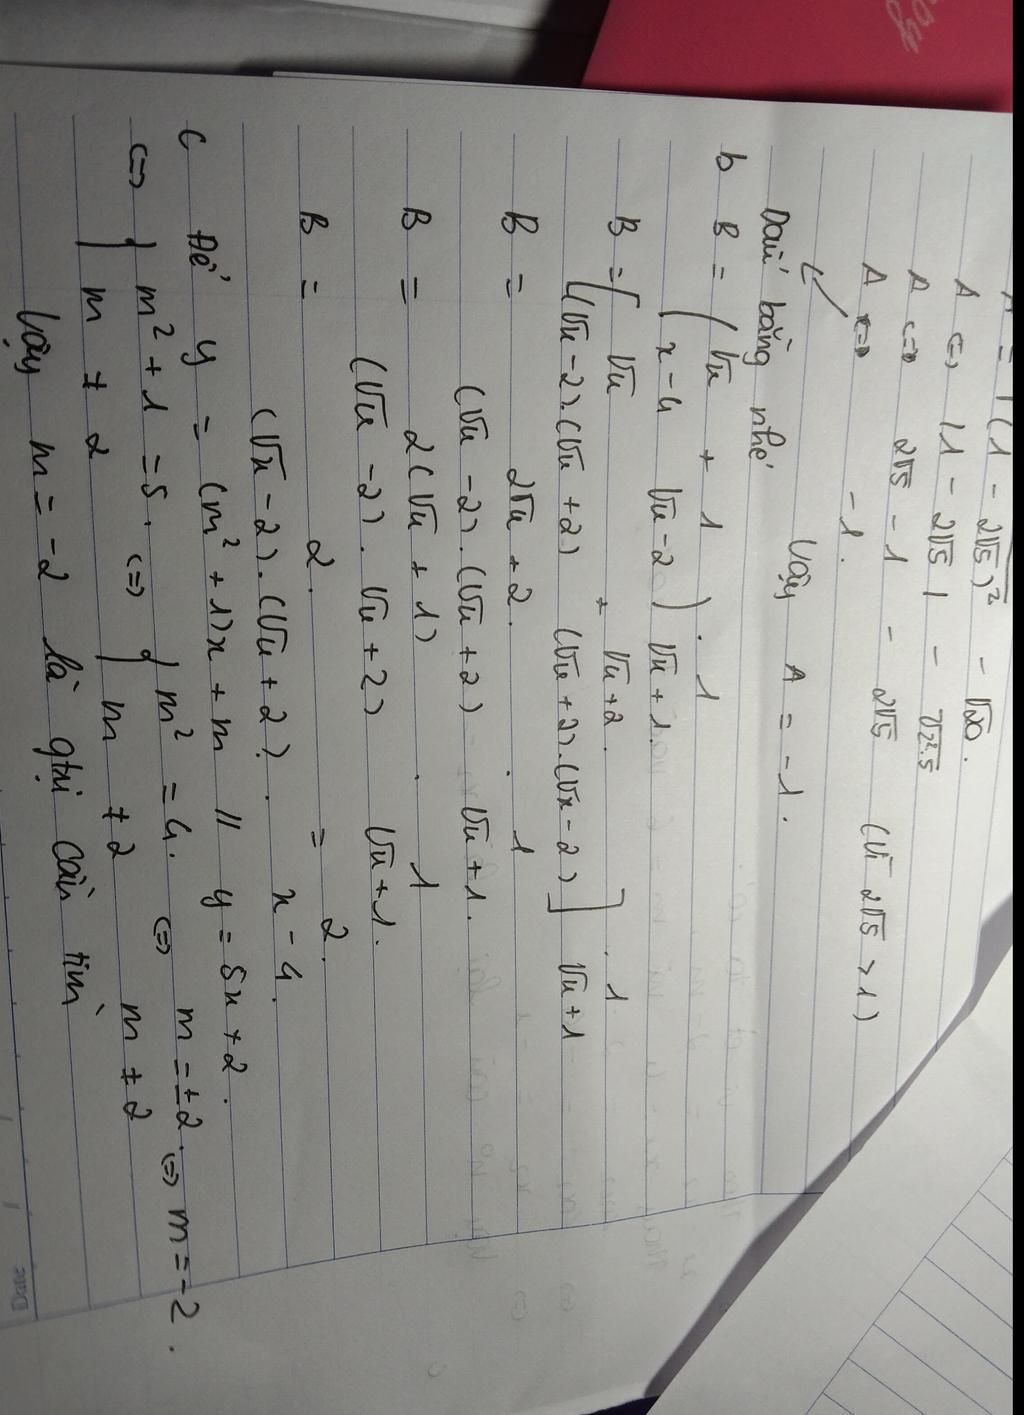 A = √(1 - 2√5)² - √20.
A <=> |1 - 2√5| - √2².5
A <=> 2√5 - 1 - 2√5 (Vì 2√5 > 1)
A <=> -1.
Vậy A = -1.
Dấu bằng nhé
b B = (√x + 1) . 1
x-4 √x-2) √x+1.
B = [ √x + √x+2. ] . 1
(√x-2).(√x+2) (√x+2).(√x-2) √x+1
B = 2√x + 2. . 1
(√x - 2).(√x + 2) √x+1.
B = 2(√x + 1) . 1
(√x - 2). √x + 2) √x+1.
B = 2. = 2.
(√x - 2).(√x + 2). x-4.
c Để y = (m² + 1)x + m // y = 5x + 2.
<=> { m² + 1 = 5. <=> { m² = 4. <=> m = ±2. <=> m = -2.
m ≠ 2 m ≠ 2 m ≠ 2
Vậy m = -2 là gtrị cần tìm
Date